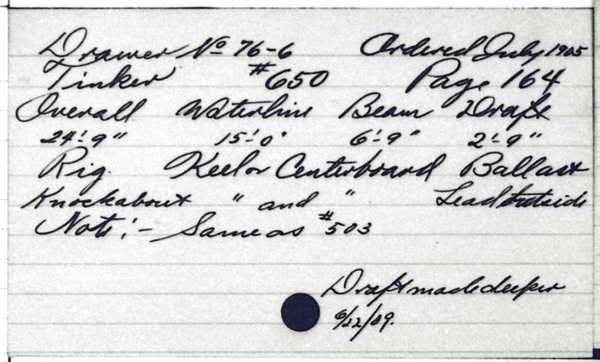 Drawer No 76-6 Ordered July 1905
Tinker #650 Page 164
Overall Waterline Beam Draft
24'-9" 15'-0" 6'-9" 2'-9"
Rig. Keel or Centerboard Ballast
Knockabout " and " Lead Outside
Note:- Same as #503
Draft made deeper
6/22/09.